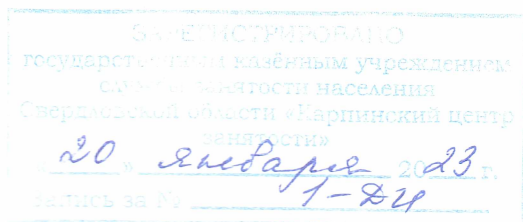 ЗАРЕГИСТРИРОВАНО
государственным казённым учреждением
службы занятости населения
Свердловской области «Карпинский центр
занятости»
« 20 » января 2023 г.
запись за № 1-ДИ